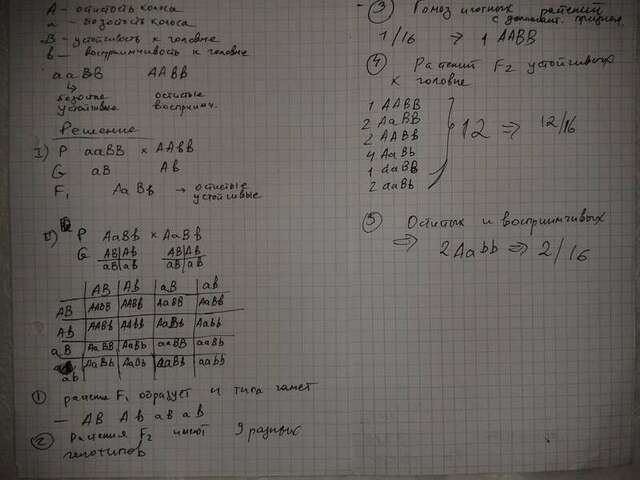 A - остистость колоса
а - безостость колоса
B - устойчивость к головне
b - восприимчивость к головне
aaBB AABB
↳
безостые остистые
устойчивые восприимч.
Решение
I) P aaBB × AABB
G aB Ab
F₁ AaBb → остистые
устойчивые
II) P AaBb × AaBb
G AB|Ab AB|Ab
aB|ab aB|aB
AB Ab aB ab
AB AABB AABb AaBB AaBb
Ab AABb AAbb AaBb Aabb
aB AaBB AaBb aaBB aaBb
ab AaBb AaBb AaBb aabb
① растение F₁ образует 4 типа гамет
— AB Ab aB ab
② Растения F₂ имеют 9 разных
генотипов
③ Гомозиготных растений
с доминант. признак.
1/16 → 1 AABB
④ Растений F₂ устойчивых
к головне
1 AABB
2 AaBB
2 AABb
4 AaBb
1 aaBB
2 aaBb
12 ⇒ 12/16
⑤ Остистых и восприимчивых
⇒ 2Aabb ⇒ 2/16